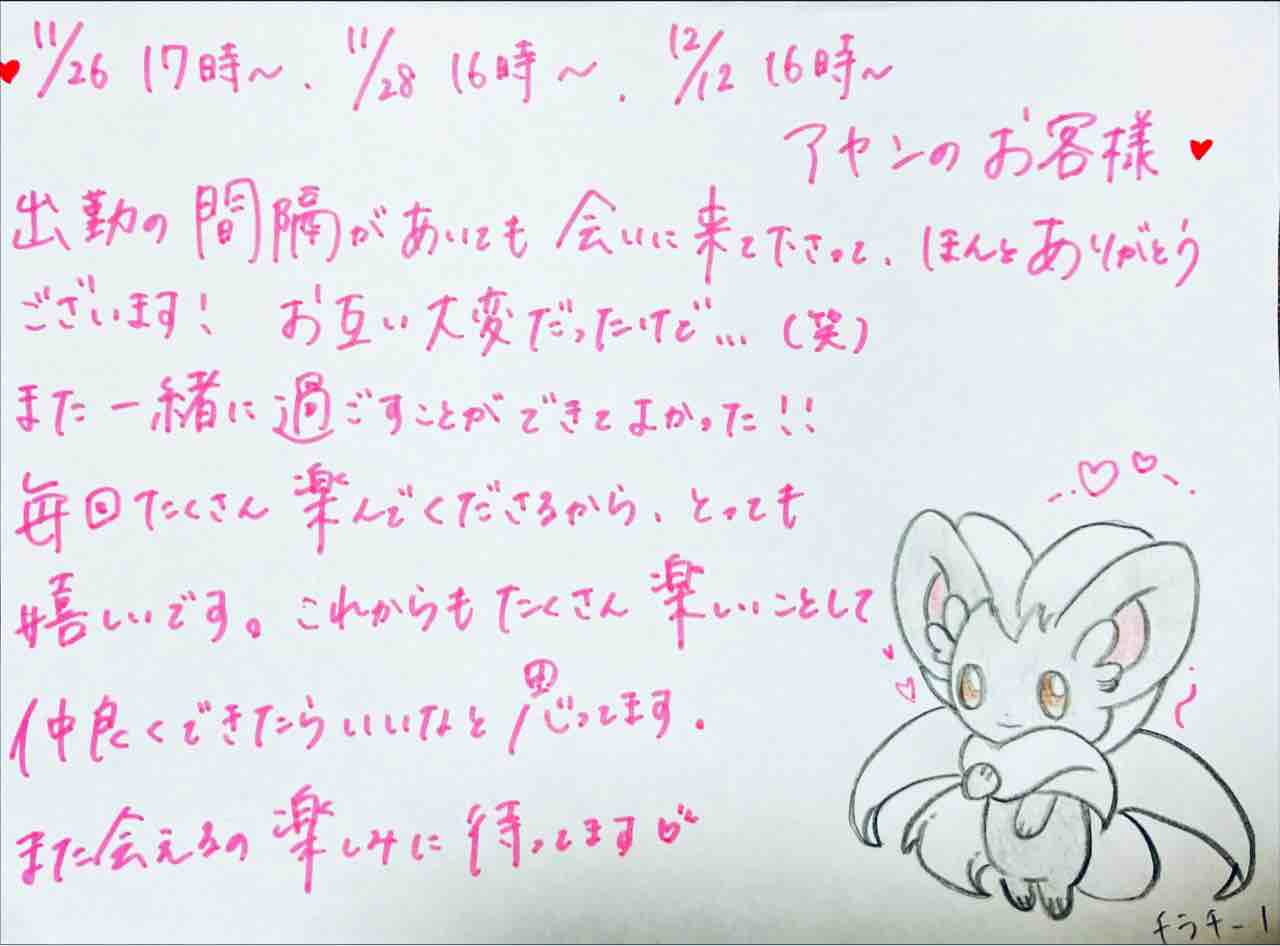 11/26 17時〜、11/28 16時〜、12/12 16時〜
アヤンのお客様
出勤の間隔があいても会いに来て下さって、ほんとありがとう
ございます! お互い大変だったけど…(笑)
また一緒に過ごすことができてよかった!!
毎回たくさん楽んでくださるから、とっても
嬉しいです。これからもたくさん楽しいことして
仲良くできたらいいなと思ってます.
また会えるの楽しみに待ってます
チラチーノ